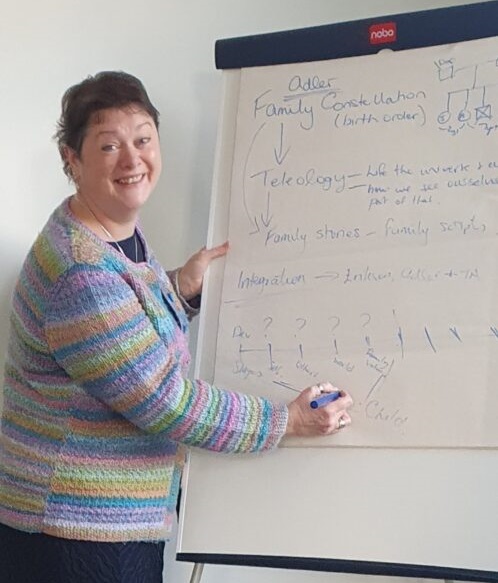 nobo
Adler
Family Constellation
(birth order)
Teleology - Life the universe &
how we see ourselves
part of that.
Family stories - family scripts
Integration → Erikson, Adler + TA
Dev ? ? ? ?
Stages Others World